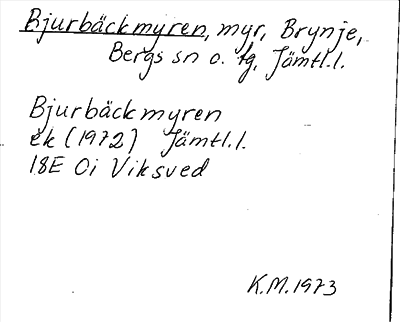 Bjurbäckmyren, myr, Brynje,
Bergs sn o. tg, Jämtl.l.
Bjurbäckmyren
ek (1972) Jämtl.l.
18E 0i Viksved
K.M.1973